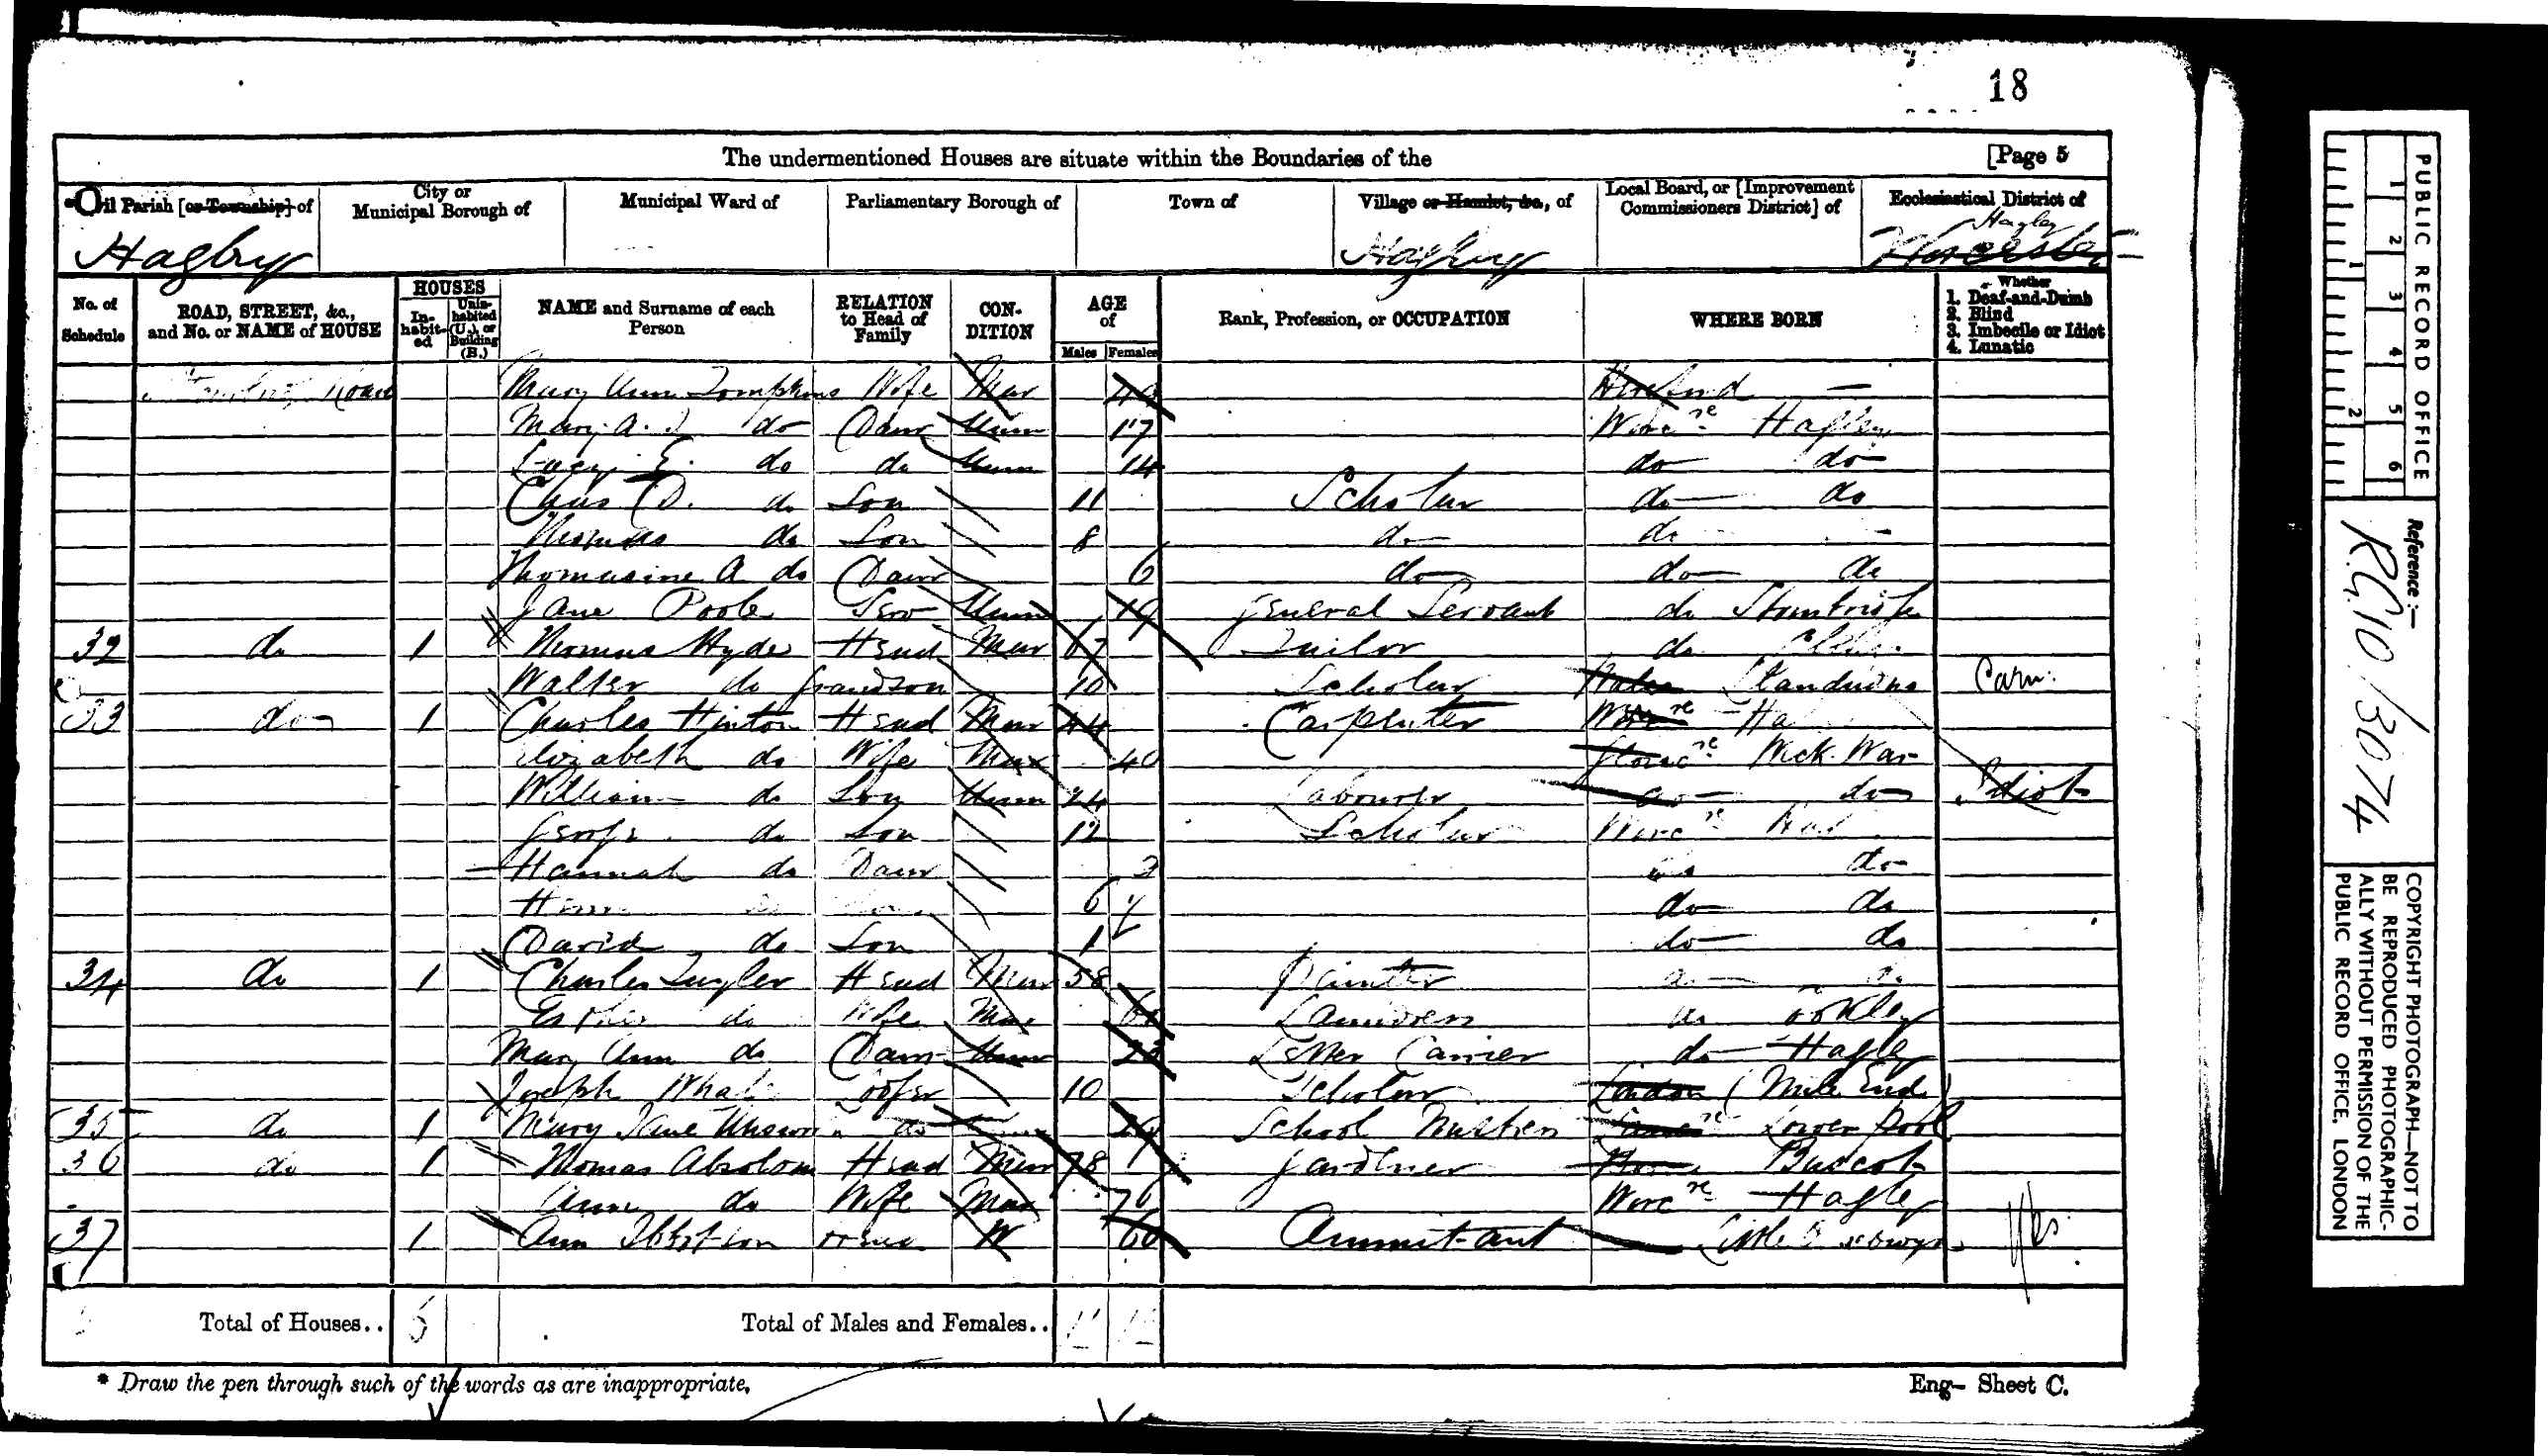 18
The undermentioned Houses are situate within the Boundaries of the [Page 5
Civil Parish [or Township] of
City or Municipal Borough of
Municipal Ward of
Parliamentary Borough of
Town of
Village or Hamlet, &c., of
Local Board, or [Improvement Commissioners District] of
Ecclesiastical District of
Hagley
Hagley
Hagley
Worcester
No. of Schedule
ROAD, STREET, &c., and No. or NAME of HOUSE
HOUSES
In-habit-ed
Unin-habited (U.), or Building (B.)
NAME and Surname of each Person
RELATION to Head of Family
CON-DITION
AGE of
Males Females
Rank, Profession, or OCCUPATION
WHERE BORN
Whether
1. Deaf-and-Dumb
2. Blind
3. Imbecile or Idiot
4. Lunatic
Road Mary Ann Tompkins Wife Mar Hereford —
Mary A. do Daur Unm 17 Worc re Hagley
Lucy E. do do Unm 14 do do
Chas D. do Son 11 Scholar do do
Thomas do Son 8 do do
Thomasine A do Daur 6 do do do
Jane Poole Serv Unm 19 General Servant do Stourbridge
32 do 1 Thomas Hyde Head Mar 67 Tailor do
Walter do Grandson 10 Scholar Wales Llandudno Carn.
33 do 1 Charles Hinton Head Mar 44 Carpenter Worc re Ha
Elizabeth do Wife Mar 40 Glouc re Wick War
William do Son Unm 24 Labourer do do Idiot
George do Son 12 Scholar Worc re
Hannah do Daur 3 do do
6 do do
David do Son 1 do do
34 do 1 Charles Head Mar 58 Painter do do
Esther do Wife Mar Laundress do
Mary Ann do Daur Unm Letter Carrier do Hagley
Joseph Lodger 10 Scholar London (Mile End)
35 do 1 Mary Jane do School Mistress
36 do 1 Thomas Absolom Head Mar 78 Gardener Buscot
Anne do Wife Mar 76 Worc re Hagley
37 1 Ann Ibbotson Head W 60 Annuitant Yes
Total of Houses.. 6 Total of Males and Females..
* Draw the pen through such of the words as are inappropriate.
Eng– Sheet C.
PUBLIC RECORD OFFICE
1 2 3 4 5 6
1 2
Reference:—
RG 10 / 3074
COPYRIGHT PHOTOGRAPH—NOT TO BE REPRODUCED PHOTOGRAPHIC-ALLY WITHOUT PERMISSION OF THE PUBLIC RECORD OFFICE, LONDON